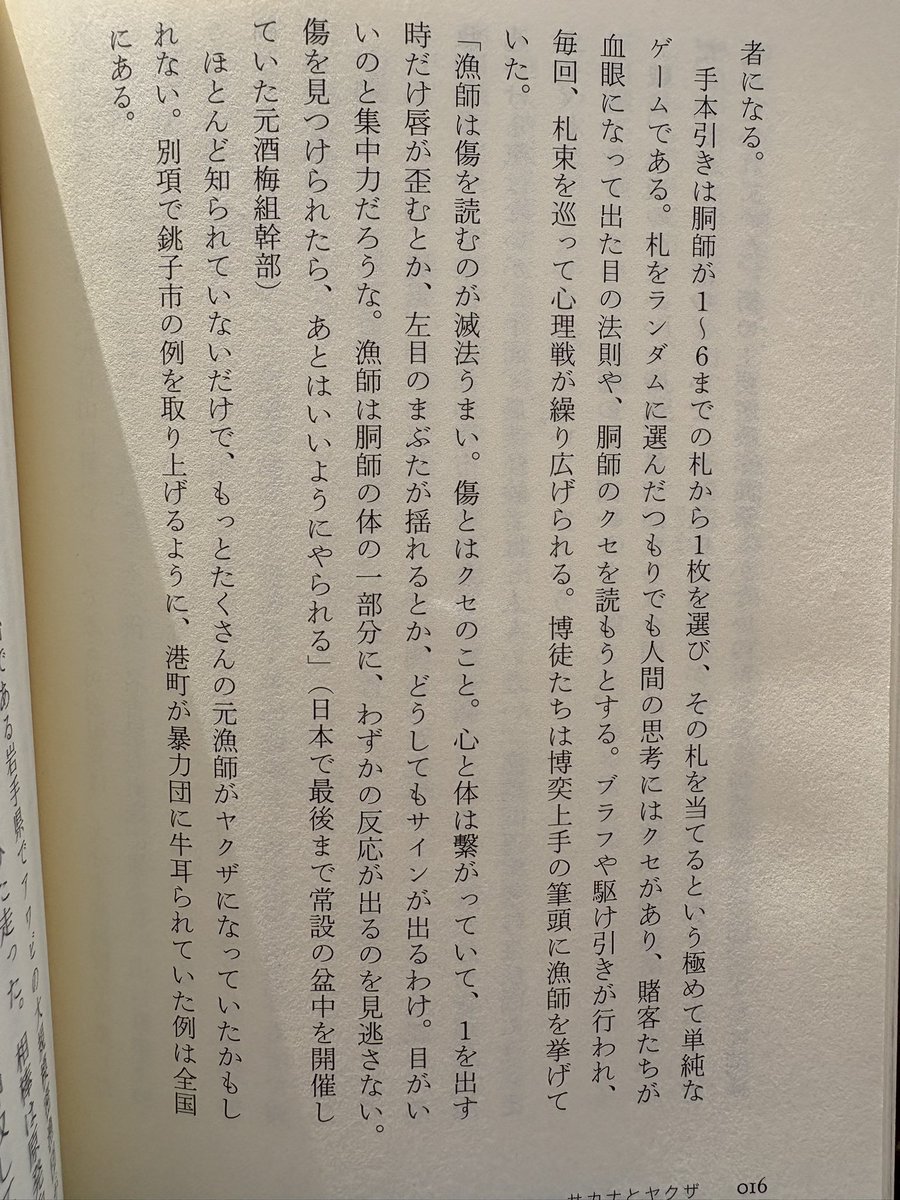 者になる。
　手本引きは胴師が1〜6までの札から1枚を選び、その札を当てるという極めて単純な
ゲームである。札をランダムに選んだつもりでも人間の思考にはクセがあり、賭客たちが
血眼になって出た目の法則や、胴師のクセを読もうとする。ブラフや駆け引きが行われ、
毎回、札束を巡って心理戦が繰り広げられる。博徒たちは博奕上手の筆頭に漁師を挙げて
いた。
「漁師は傷を読むのが滅法うまい。傷とはクセのこと。心と体は繋がっていて、1を出す
時だけ唇が歪むとか、左目のまぶたが揺れるとか、どうしてもサインが出るわけ。目がい
いのと集中力だろうな。漁師は胴師の体の一部分に、わずかの反応が出るのを見逃さない。
傷を見つけられたら、あとはいいようにやられる」（日本で最後まで常設の盆中を開催し
ていた元酒梅組幹部）
　ほとんど知られていないだけで、もっとたくさんの元漁師がヤクザになっていたかもし
れない。別項で銚子市の例を取り上げるように、港町が暴力団に牛耳られていた例は全国
にある。
サカナとヤクザ
016
である岩手県でアワビの
た走った。